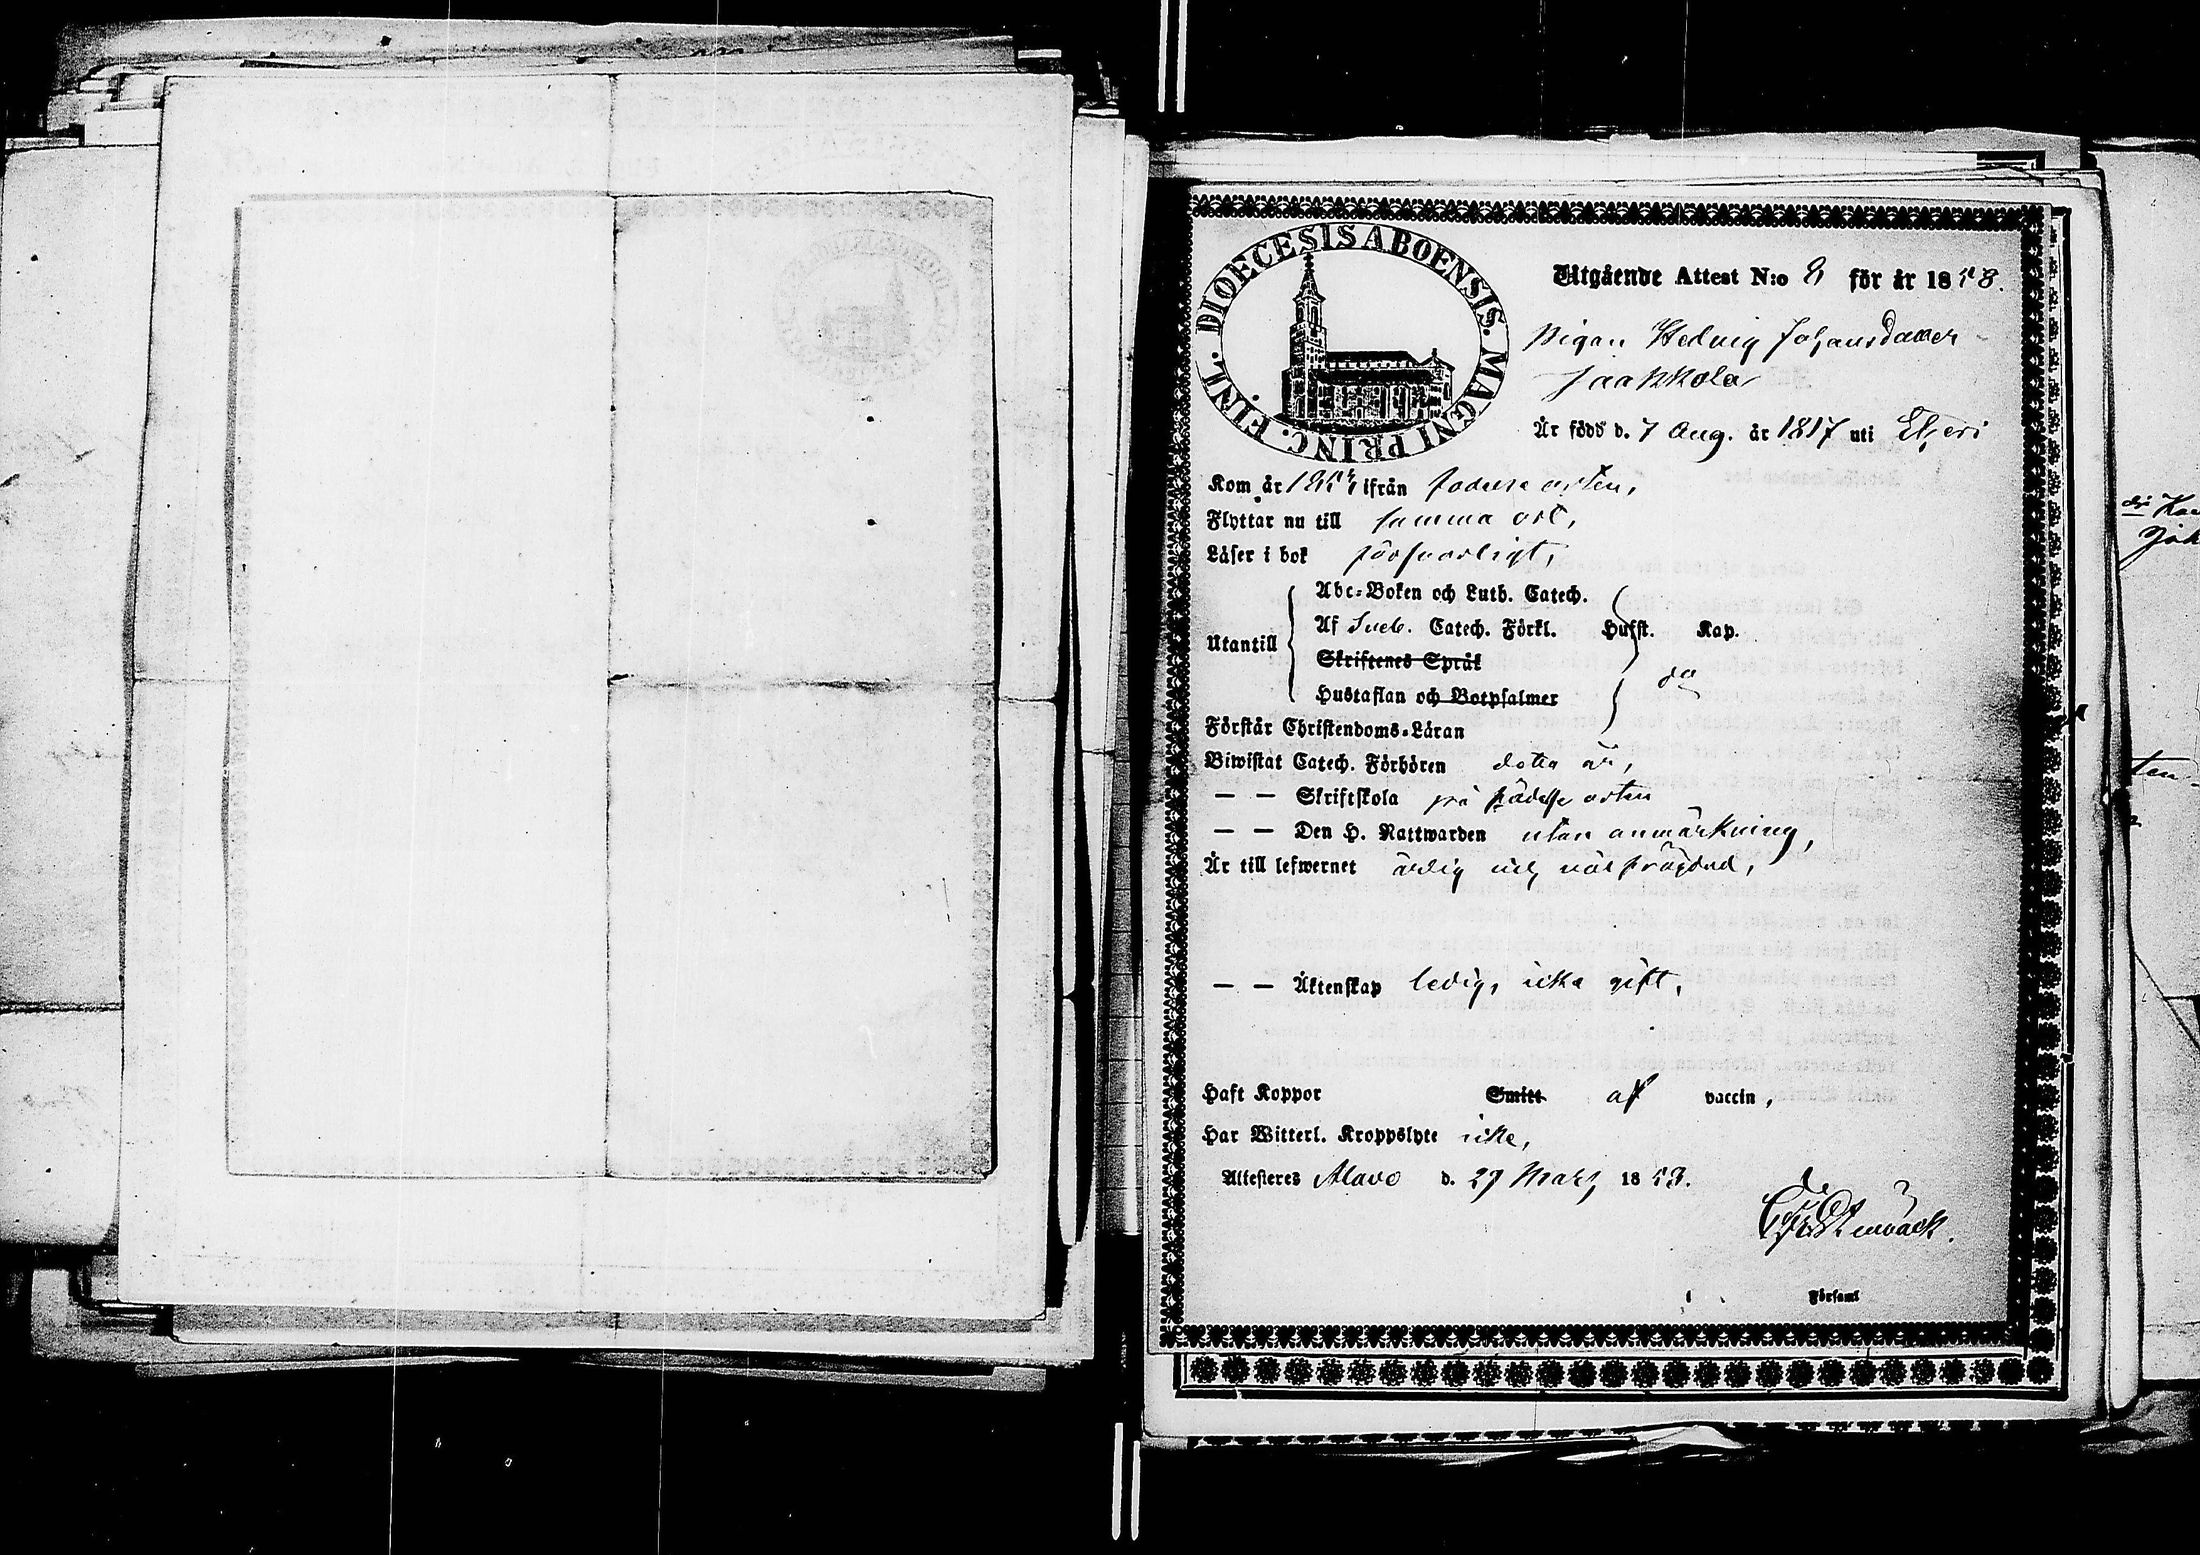 DIOECESIS ABOENSIS. MAGNI PRINC. FINL.
Utgående Attest N:o 8 för år 1853.
Pigan Hedvig Johansdotter
Jaakkola
Är född d. 7 Aug. år 1817 uti Etseri
Kom år ifrån födelse orten,
Flyttar nu till samma ort,
Läser i bok försvarligt,
Utantill
Abc-Boken och Luth. Catech.
Af Sveb. Catech. Förkl. Hufst. Kap.
Skriftenes Språk
Hustaflan och Botpsalmer
Förstår Christendoms-Läran
Biwistat Catech. Förhören detta år,
— — Skriftskola på födelse orten
— — Den H. Nattwarden utan anmärkning,
Är till lefwernet ärlig och väl frägdad,
— — Äktenskap ledig, icke gift,
Haft Koppor Smitt af vaccin,
Har Witterl. Kroppslyte icke,
Attesteres Alavo d. 27 Mars 1853.
Församl